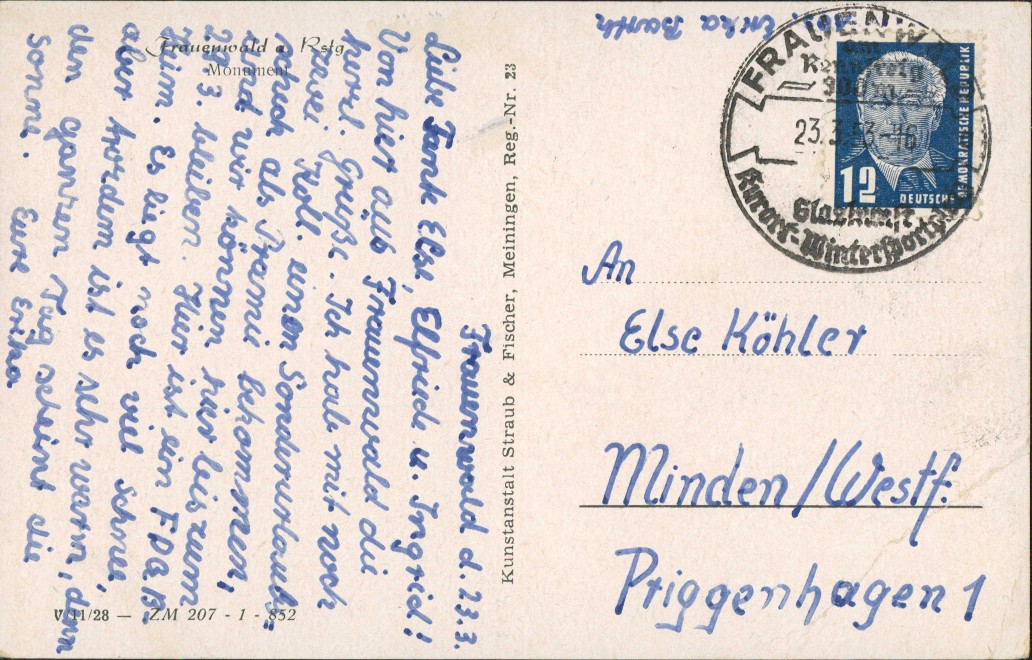 Frauenwald a. Rstg.
Monument
Frauenwald d. 23.3.
Liebe Tante Else, Elfriede u. Ingrid!
Von hier aus Frauenwald die
herzl. Grüße. Ich habe mit noch
zwei Koll. einen Sonderurlaub
schich als Prämie bekommen,
und wir können hier bis zum
27.3. bleiben. Hier ist ein FDGB
Heim. Es liegt noch viel Schnee
aber trotzdem ist es sehr warm, denn
den ganzen Tag scheint die
Sonne. Eure Erika
V/11/28 — ZM 207 - 1 - 852
Kunstanstalt Straub & Fischer, Meiningen, Reg.-Nr. 23
Erika Barth
FRAUENW
am
Rennsteig
23.3.53-16
Kurort-Wintersport
12
DEUTSCHE
DEMOKRATISCHE REPUBLIK
An
Else Köhler
Minden/Westf.
Priggenhagen 1